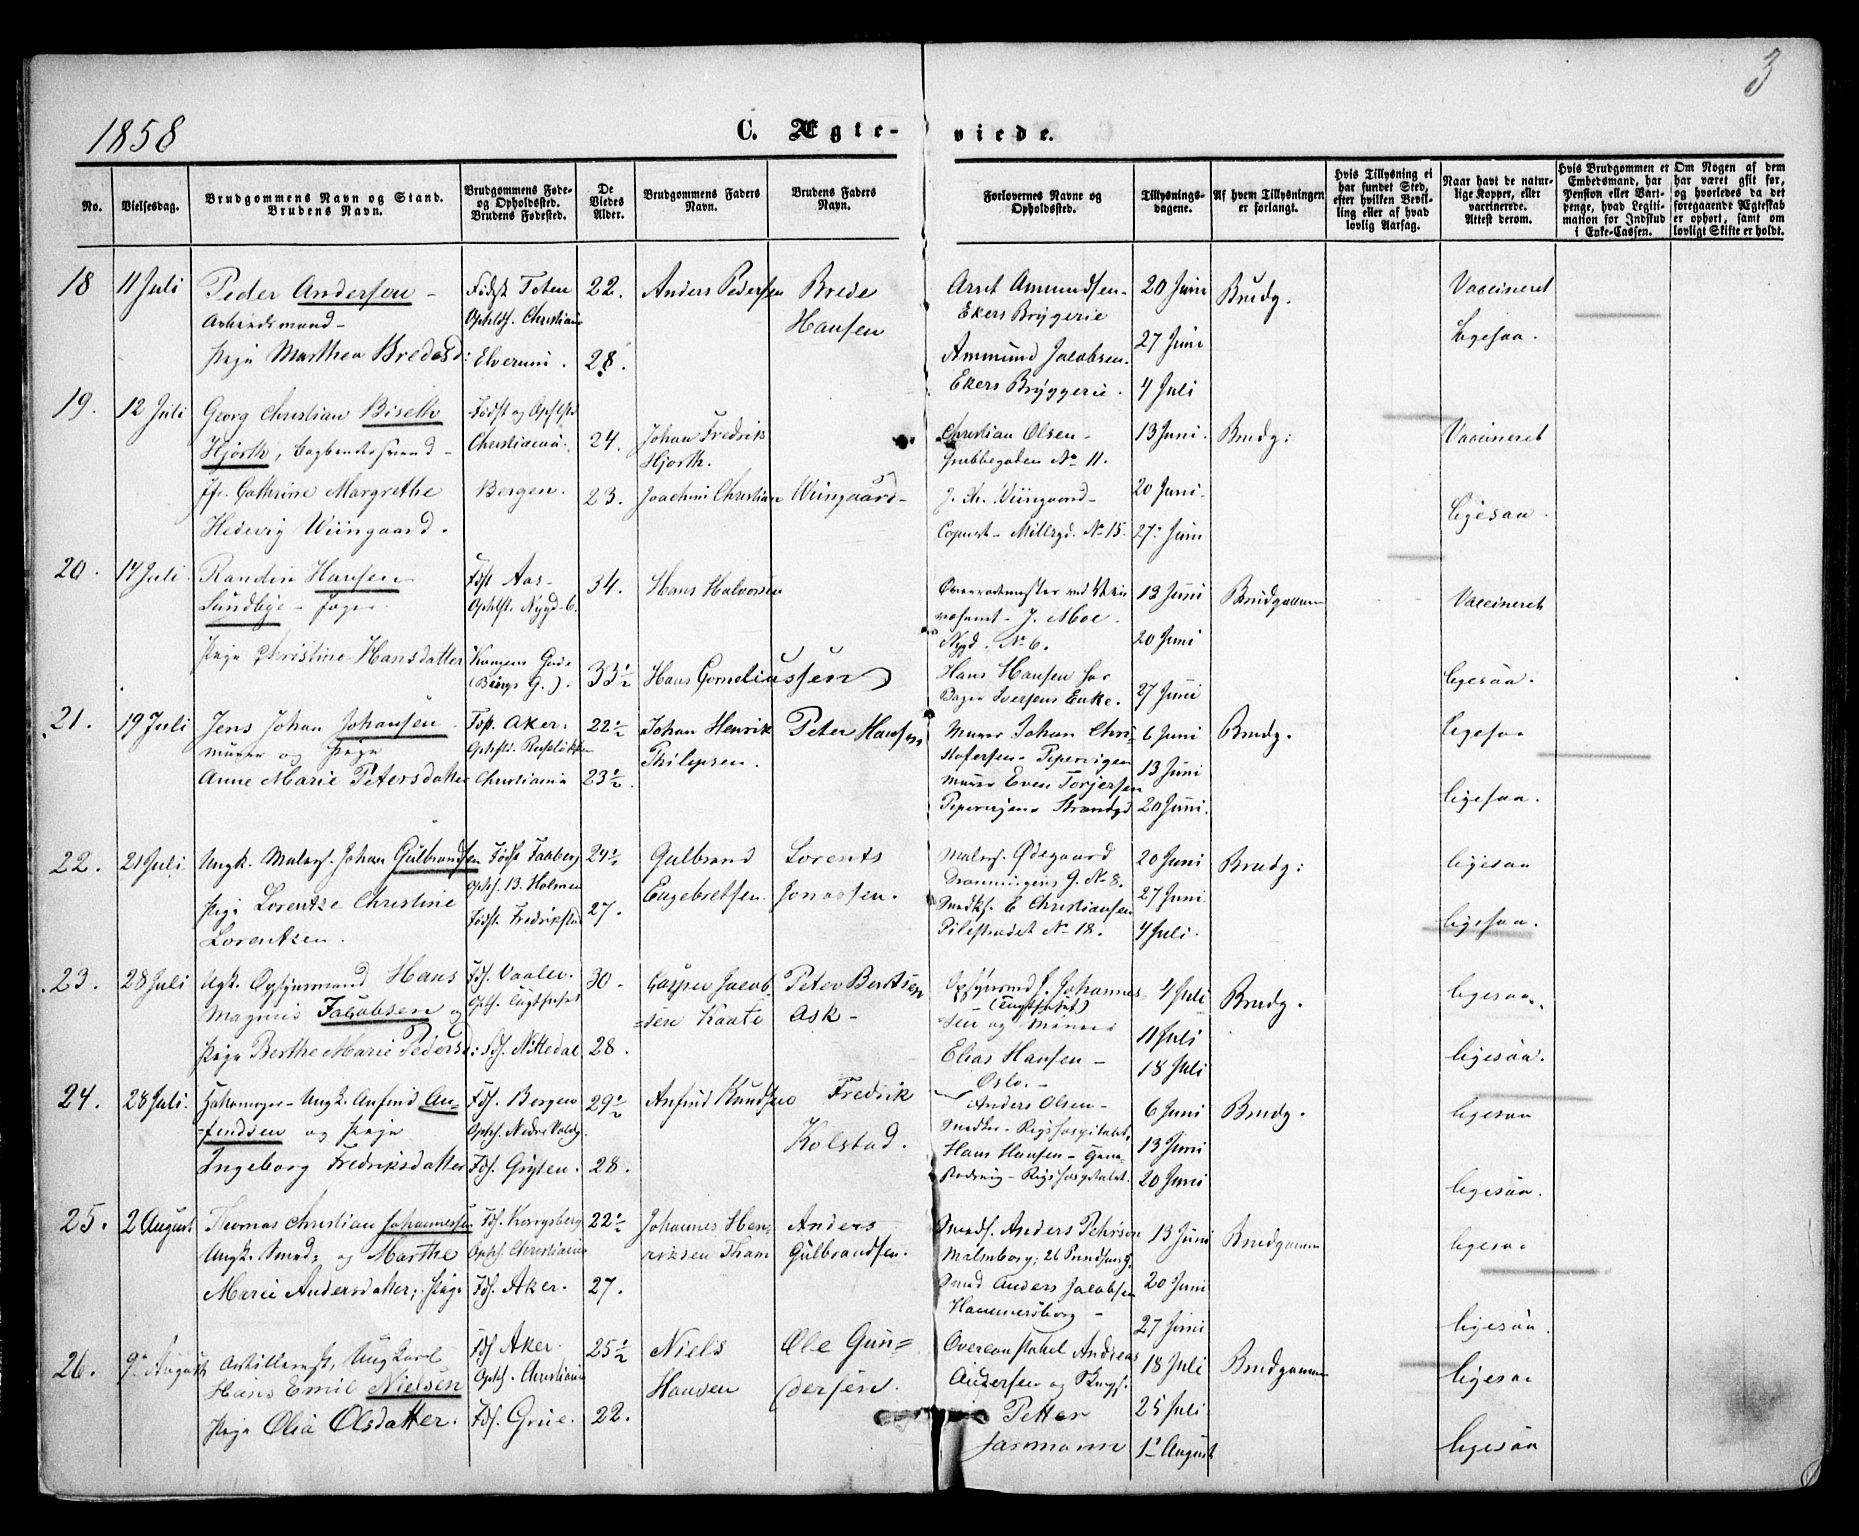 3
1858
C. Ægte-
viede.
No.
Vielsesdag.
Brudgommens Navn og Stand.
Brudens Navn.
Brudgommens Føde-
og Opholdssted.
Brudens Fødested.
De
Viedes
Alder.
Brudgommens Faders
Navn.
Brudens Faders
Navn.
Forlovernes Navne og
Opholdssted.
Tillysnings-
dagene.
Af hvem Tillysningen
er forlangt.
Hvis Tillysning ei
har fundet Sted,
efter hvilken Bevil-
ling eller af hvad
lovlig Aarsag.
Naar havt de natur-
lige Kopper, eller
vaccinerede.
Attest derom.
Hvis Brudgommen er
Embedsmand, har
Pension eller Vart-
penge, hvad Legiti-
mation for Indskud
i Enke-Cassen.
Om Nogen af dem
har været gift før,
og hvorledes da det
foregaaende Ægteskab
er ophørt, samt om
lovligt Skifte er holdt.
18 11 Juli Peder Andersen - Født Toten 22. Anders Pedersen Brede Arnt Ammundsen- 20 Juni Brudg. Vaccineret
Arbeidsmand- Ophldst. Christiania Hansen Ekers Brÿgerie
Pige Marthea Bredesd: Elverum. 28. Ammund Jacobsen. 27 Juni ligesaa.
Ekers Brÿggerie. 4 Juli
19. 12 Juli Georg Christian Biseth Født og Ophlst. Christian Olsen- 13 Juni. Brudg: Vaccineret
Hjorth, Christiania. 24. Johan Fredrik Grubbegaden No 11.
Hjorth.
Jfr. Cathrine Margrethe Bergen. 23. Joachim Christian Wiingaard- Wiingaard- 20 Juni. ligesaa.
Hedevig Wiingaard. Copiist- Møllergd. No 15. 27 Juni
20. 17 Juli. Randin Hansen Født Aas- 34. Hans Halvorsen 13 Juni Brudgommen Vaccineret
Sundbye- Ophlst. Nygd-6. J. Moe. 20 Juni
Nygd. No 6.
Pige Christine Hansdatter Kongens Gade 33½ Hans Corneliussen Hans Hansen hos 27 Juni ligesaa.
Bager Iversens Enke.
21. 19 Juli Jens Johan Johansen Fdst. Aker. 22½ Johan Henrik Peter Hansen Murer Johan Chri- 6 Juni Brudg. ligesaa
murer og Pige Philipsen. stofersen- Pipervigen 13 Juni
Anne Marie Petersdatter Christiania 23½ murer Even Torjersen ligesaa.
Pipervigens Strandgd 20 Juni.
22. 21 Juli Ungk. Malers. Johan Gulbrandsen Født Faaberg 24½ Gulbrand Lorents Malers. Ødegaard 20 Juni Brudg: ligesaa
Ophs. B. Holmen Engebretsen. Jonassen. Dronningens G. No 8. 27 Juni
Pige Lorentze Christine Født Fredrikstad 27. Snedks. E Christiansen ligesaa.
Lorentzen. Pilestrædet No 18. 4 Juli.
23. 28 Juli Ugk. Opsynsmand Hans Fds. Vaaler. 30. Casper Jacob- Peter Berntsen Opsynsmd. Johannes- 4 Juli Brudg. ligesaa.
Magnus Jacobsen og Ophs. Tugthuset =sen Ask- (Tugthuset)
sen og 11 Juli
Pige Berthe Marie Pedersd: Fds. Nittedal. 28. Elias Hansen- 18 Juli ligesaa.
Oslo.-
24. 28 Juli. Ungk. Anfind An- Fds. Bergen 29½ Anfind Knudsen Fredrik Anders Olsen- 6 Juni Brudg. ligesaa
findsen og Pige Kolstad. Rigshospitalet, 13 Juni
Ingeborg Fredriksdatter Fds. Gryten. 28. Hans Hansen- Rigshospitalet. 20 Juni ligesaa.
25. 2 August Thomas Christian Johannessen Fds. Kongsberg 22½ Johannes Hen- Anders Smeds. Anders Pehrson 13 Juni Brudgommen ligesaa
Ungk. Smed; og Marthe Ophs. Christiania riksen Gulbrandsen. Malmborg; 26
Marie Andersdatter; Pige Fds. Aker. 27. Smed Anders Jacobsen 20 Juni
Hammersborg- 27 Juni ligesaa.
26. 9. August Ungkarl Fds Aker. 25½ Niels Ole Gun- Overconstabel Andreas 18 Juli Brudgommen ligesaa
Hans Emil Nielsen Ophs. Christiania Hansen dersen. Andersen og
Pige Olia Olsdatter. Fds. Grue. 22. Petter 25 Juli
1 August ligesaa